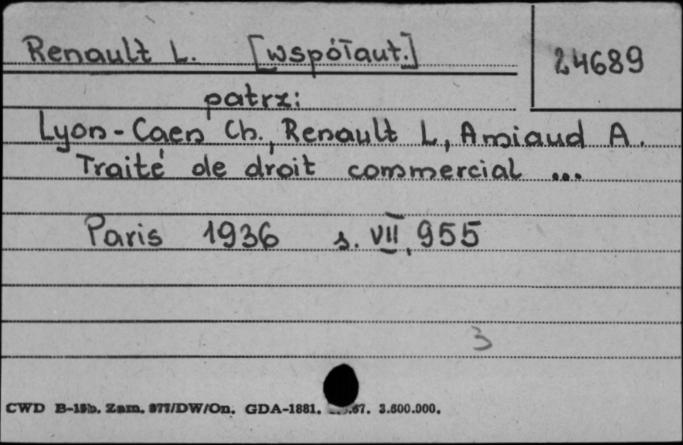 Renault L. [współaut.]
24689
patrz:
Lyon-Caen Ch., Renault L, Amiaud A.
Traité de droit commercial ...
Paris 1936 s. VII, 955
3
CWD B-19b. Zam. 877/DW/On. GDA-1881. .67. 3.500.000.